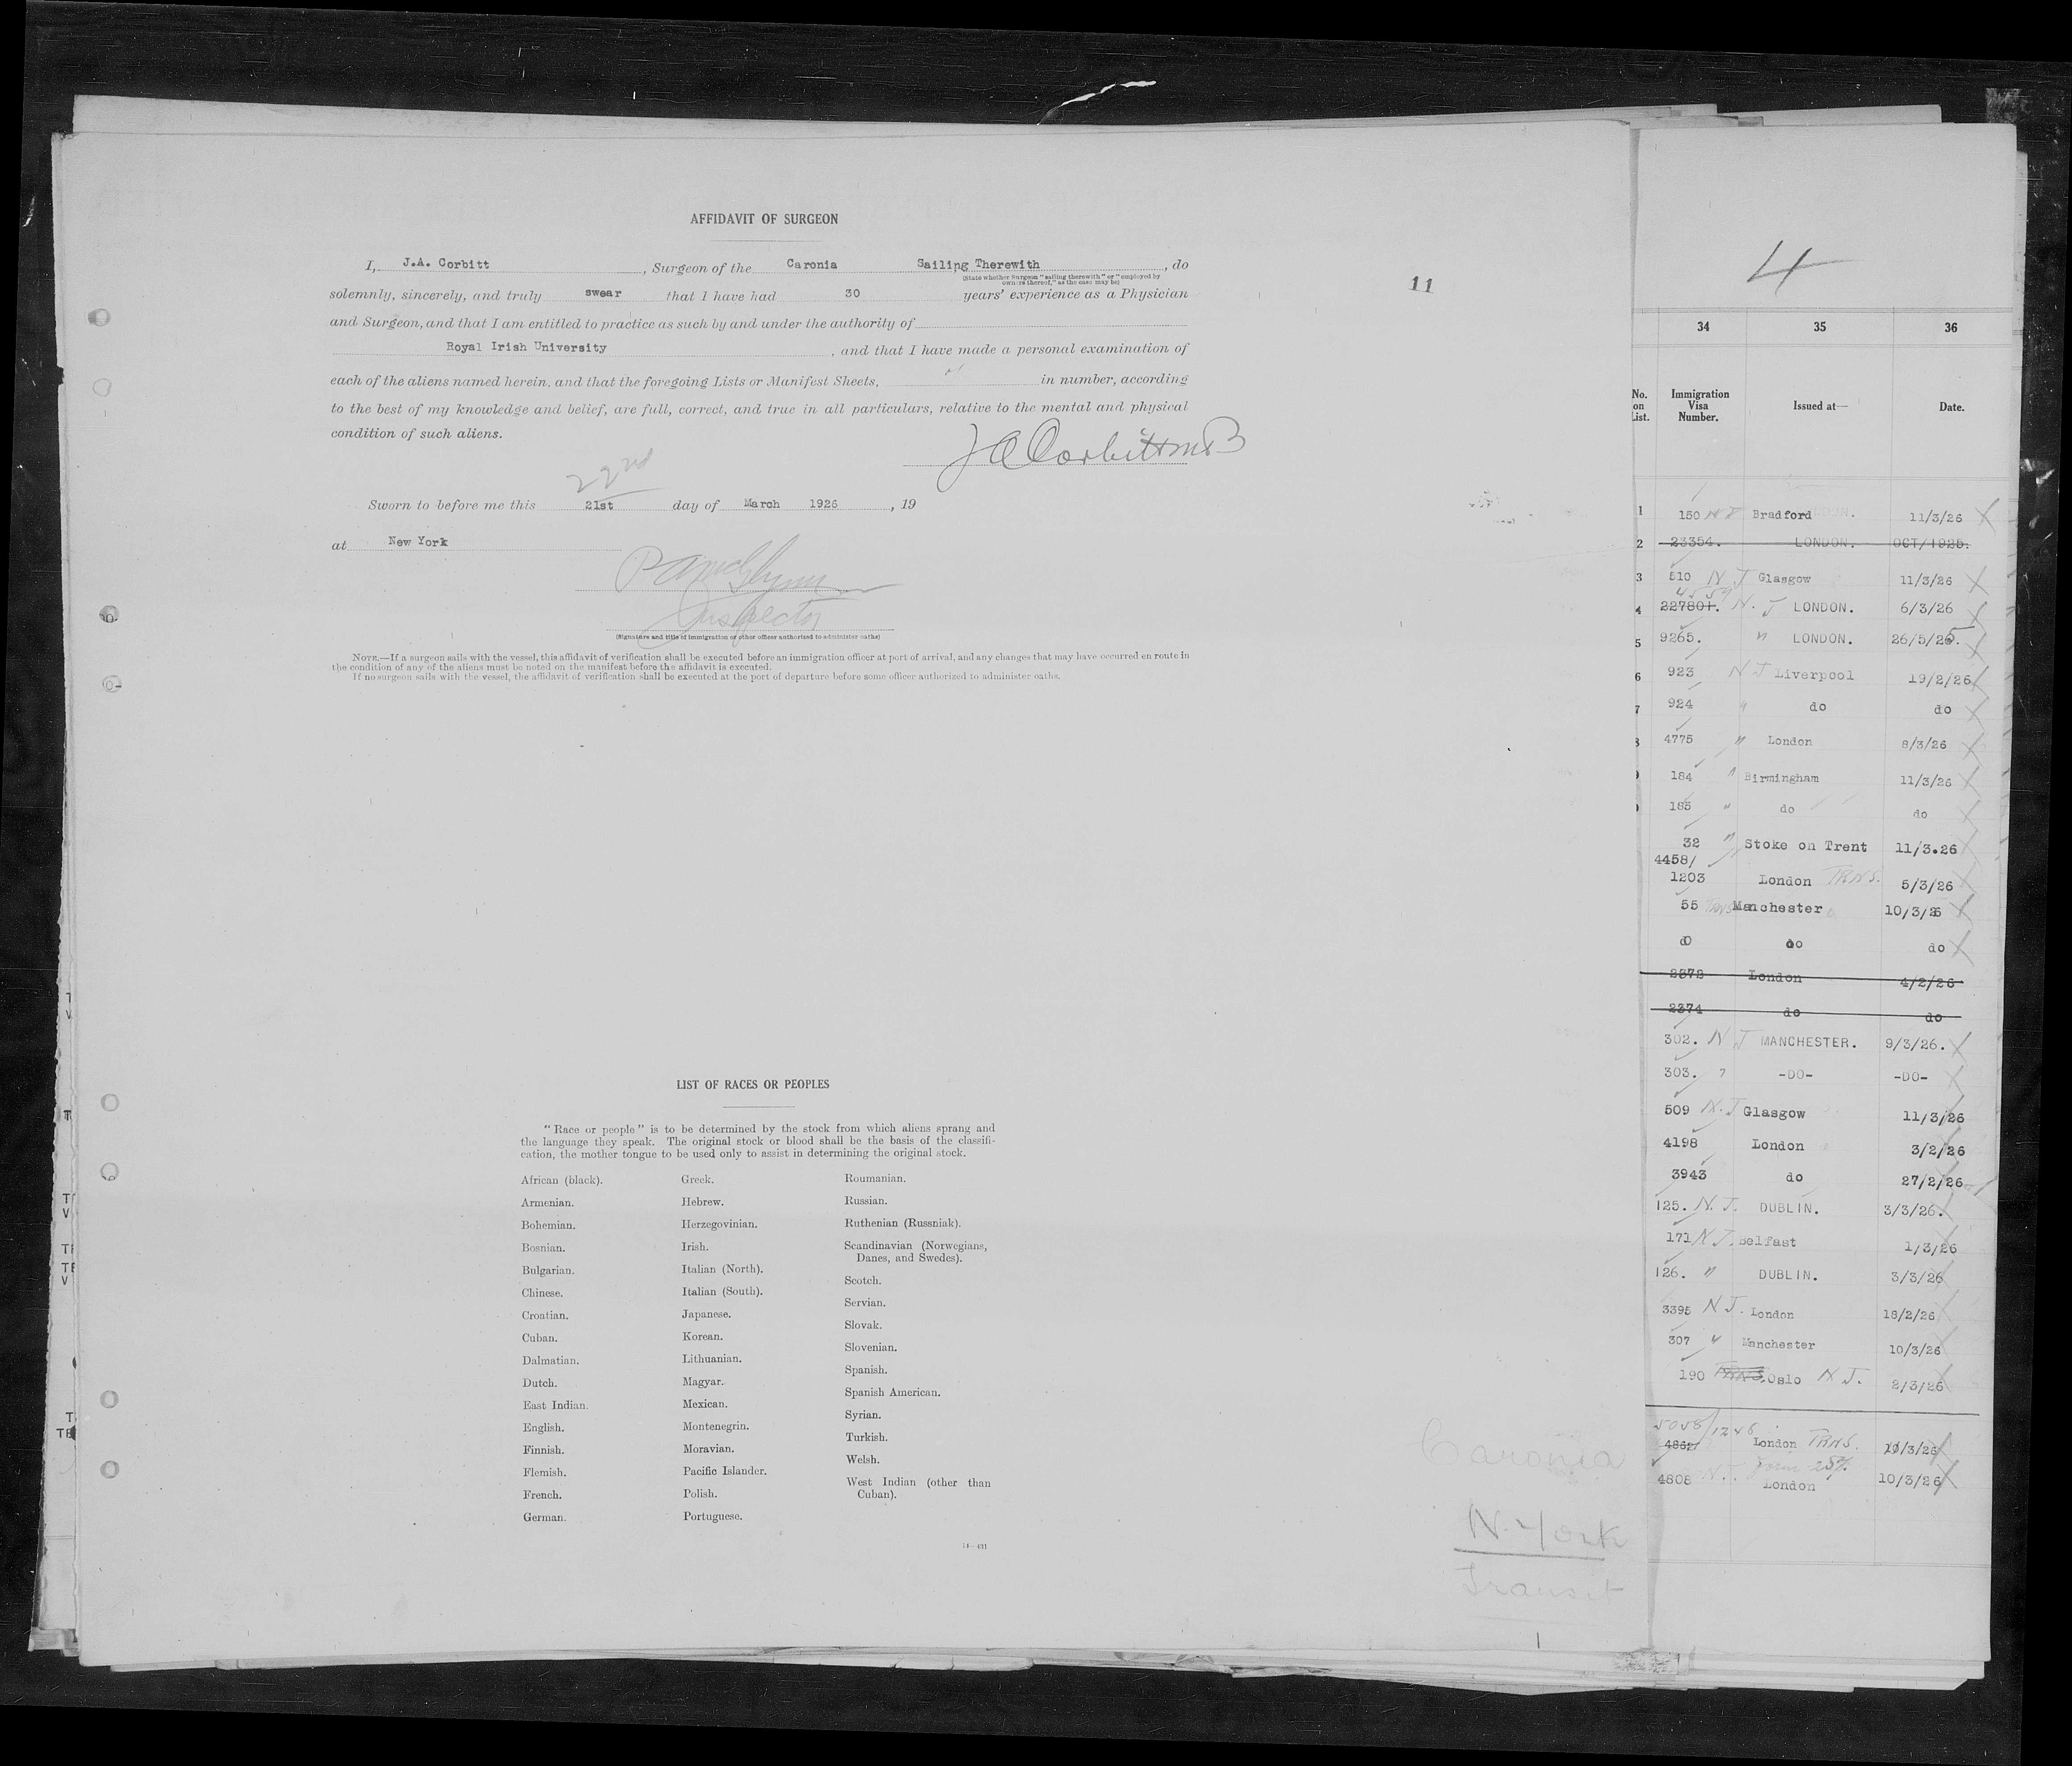 AFFIDAVIT OF SURGEON
I, J.A. Corbitt , Surgeon of the Caronia Sailing Therewith , do
(State whether Surgeon "sailing therewith" or "employed by
owners thereof," as the case may be)
solemnly, sincerely, and truly swear that I have had 30 years' experience as a Physician
and Surgeon, and that I am entitled to practice as such by and under the authority of
Royal Irish University , and that I have made a personal examination of
each of the aliens named herein, and that the foregoing Lists or Manifest Sheets, in number, according
to the best of my knowledge and belief, are full, correct, and true in all particulars, relative to the mental and physical
condition of such aliens.
J A Corbitt MB
22nd
Sworn to before me this 21st day of March 1926 , 19
at New York
Inspector
(Signature and title of immigration or other officer authorized to administer oaths)
NOTE.—If a surgeon sails with the vessel, this affidavit of verification shall be executed before an immigration officer at port of arrival, and any changes that may have occurred en route in
the condition of any of the aliens must be noted on the manifest before the affidavit is executed.
If no surgeon sails with the vessel, the affidavit of verification shall be executed at the port of departure before some officer authorized to administer oaths.
11
LIST OF RACES OR PEOPLES
"Race or people" is to be determined by the stock from which aliens sprang and
the language they speak. The original stock or blood shall be the basis of the classifi-
cation, the mother tongue to be used only to assist in determining the original stock.
African (black).
Armenian.
Bohemian.
Bosnian.
Bulgarian.
Chinese.
Croatian.
Cuban.
Dalmatian.
Dutch.
East Indian.
English.
Finnish.
Flemish.
French.
German.
Greek.
Hebrew.
Herzegovinian.
Irish.
Italian (North).
Italian (South).
Japanese.
Korean.
Lithuanian.
Magyar.
Mexican.
Montenegrin.
Moravian.
Pacific Islander.
Polish.
Portuguese.
Roumanian.
Russian.
Ruthenian (Russniak).
Scandinavian (Norwegians,
Danes, and Swedes).
Scotch.
Servian.
Slovak.
Slovenian.
Spanish.
Spanish American.
Syrian.
Turkish.
Welsh.
West Indian (other than
Cuban).
Caronia
N. York
Transit
4
34 35 36
No. on List. Immigration Visa Number. Issued at— Date.
1 150 Bradford 11/3/26
2 23354. LONDON. OCT/1925.
3 510 N J Glasgow 11/3/26
4 22780+. N. J LONDON. 6/3/26
5 9265. " LONDON. 26/5/25.
6 923 N J Liverpool 19/2/26
7 924 " do do
4775 " London 8/3/26
184 " Birmingham 11/3/26
185 " do do
32 " Stoke on Trent 11/3.26
4458/
1203 London TRNS. 5/3/26
55 TRNS Manchester 10/3/26
do do do
2372 London 4/2/26
2374 do do
302. N J MANCHESTER. 9/3/26.
303. -DO- -DO-
509 N. J Glasgow 11/3/26
4198 London 3/2/26
3943 do 27/2/26
125. N. J. DUBLIN. 3/3/26.
171 N J. Belfast 1/3/26
126. " DUBLIN. 3/3/26
3395 N J. London 18/2/26
307 " Manchester 10/3/26
190 TRNS. Oslo N J. 2/3/26
5058/1248
London TRNS.
4808 N J. London 10/3/26